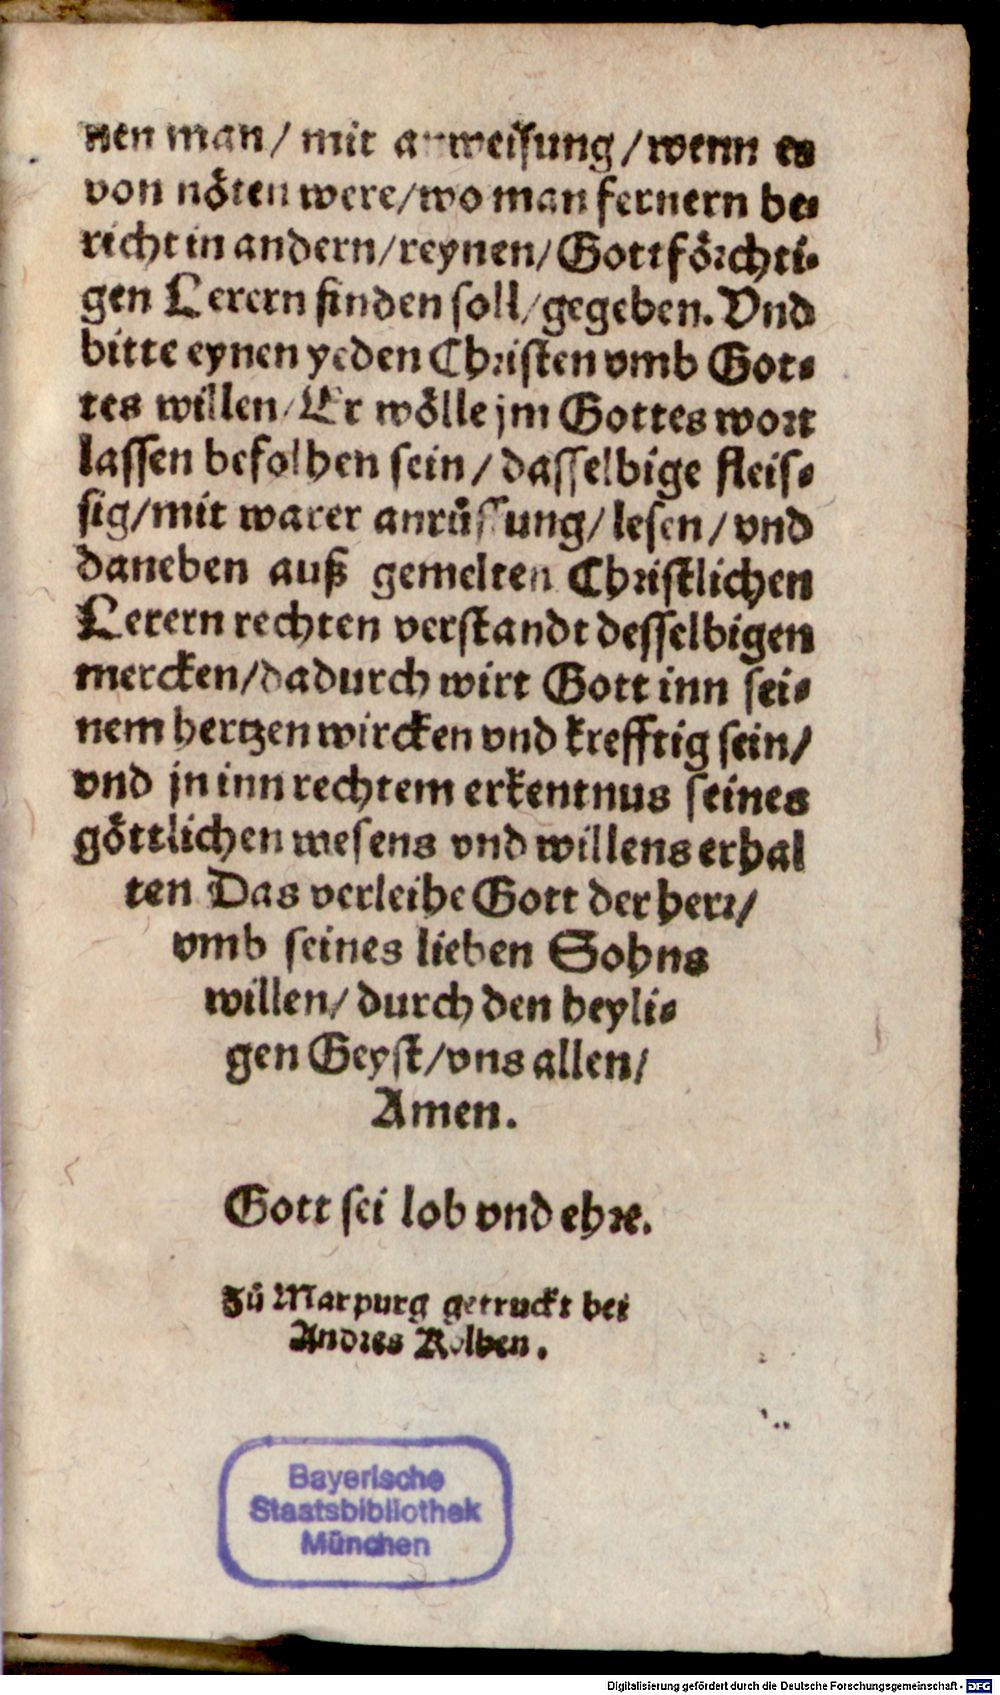 nen man/ mit anweisung/wenn es
von nöten were/wo man fernern be⸗
richt in andern/reynen/Gottförchti⸗
gen Lerern finden soll/gegeben. Vnd
bitte eynen yeden Christen vmb Got⸗
tes willen/Er wölle jm Gottes wort
lassen befolhen sein/ dasselbige fleis⸗
sig/mit warer anrüffung/ lesen/ vnd
daneben auß gemelten Christlichen
Lerern rechten verstandt desselbigen
mercken/dadurch wirt Gott inn sei⸗
nem hertzen wircken vnd krefftig sein/
vnd jn inn rechtem erkentnus seines
göttlichen wesens vnd willens erhal
ten Das verleihe Gott der herr/
vmb seines lieben Sohns
willen/ durch den heyli⸗
gen Geyst/vns allen/
Amen.
Gott sei lob vnd ehre.
Zů Marpurg getruckt bei
Andres Kolben.
Bayerische
Staatsbibliothek
München
Digitalisierung gefördert durch die Deutsche Forschungsgemeinschaft - DFG